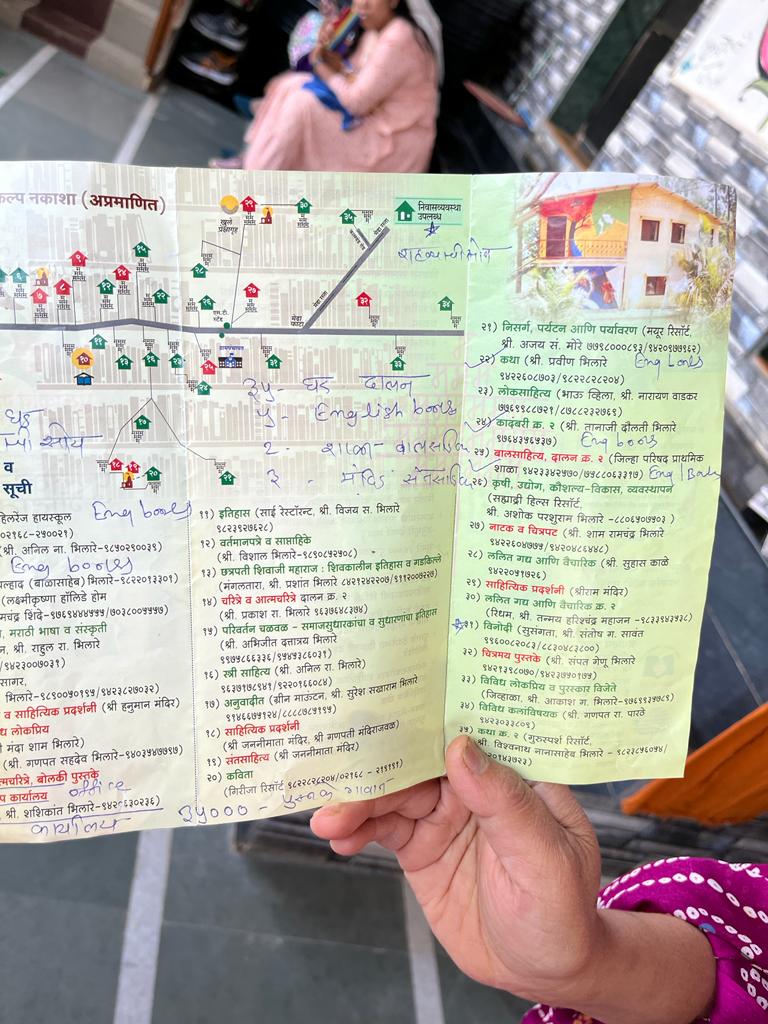 कल्प नकाशा (अप्रमाणित)
खुले
प्रेक्षागृह
निवासव्यवस्था
उपलब्ध
एस.टी.
स्टँड
३५ - घर दालन
५ - English books
२ - शाळा - बालसाहित्य
३ - मंदिर संतसाहित्य
व
सूची
हिलरेंज हायस्कूल Eng books
०२१६८-२५००२१)
(श्री. अनिल ना. भिलारे-९८५०२९००३९)
Eng books
ल्हाद (बाळासाहेब) भिलारे-९४२२०९३३०१)
(लक्ष्मीकृष्णा हॉलिडे होम
मचंद्र शिंदे-९७६९४४४५५५/७०३८००५५५७)
, मराठी भाषा व संस्कृती
न, श्री. राहुल रा. भिलारे
/९४२३००७०३९)
सागर,
भिलारे-९८९००५०१९५/९४२३८२७०३२)
व साहित्यिक प्रदर्शनी (श्री हनुमान मंदिर)
ध लोकप्रिय
मंदा शाम भिलारे)
(श्री. गणपत सहदेव भिलारे-९४०३५४७७९७)
त्मचरित्रे, बोलकी पुस्तके
प कार्यालय office
श्री. शशिकांत भिलारे-९४२०६३०२३६)
कार्यालय
११) इतिहास (साई रेस्टॉरन्ट, श्री. विजय स. भिलारे
९८२३९२७६२८)
१२) वर्तमानपत्रे व साप्ताहिके
(श्री. विशाल भिलारे-९८९०८५२५०८)
१३) छत्रपती शिवाजी महाराज : शिवकालीन इतिहास व गडकिल्ले
(मंगलतारा, श्री. प्रशांत भिलारे ८४२१२४२२०७/९११२००७२२७)
१४) चरित्रे व आत्मचरित्रे दालन क्र. २
(श्री. प्रकाश रा. भिलारे ९६३७६४८३७४)
१५) परिवर्तन चळवळ - समाजसुधारकांचा व सुधारणांचा इतिहास
(श्री. अभिजीत दत्तात्रय भिलारे
११९७५८६६३३६/९५४५३८६०३१)
१६) स्त्री साहित्य (श्री. अनिल रा. भिलारे
९६३७१७८९४१/९२२०९६६०८४)
१७) अनुवादीत (ग्रीन माऊंटन, श्री. सुरेश सखाराम भिलारे
९१४६६७५१२४/८८८८७८५१९५)
१८) साहित्यिक प्रदर्शनी
(श्री जननीमाता मंदिर, श्री गणपती मंदिराजवळ)
१९) संतसाहित्य (श्री जननीमाता मंदिर)
२०) कविता
(गिरीजा रिसॉर्ट ९८२२८२८२०४/०२१६८ - २५११९१)
३५००० - पुस्तक गावात
२१) निसर्ग, पर्यटन आणि पर्यावरण (मयूर रिसॉर्ट,
श्री. अजय सं. मोरे ७७९८०००८९३/९४२०९७७९६२)
२२) कथा (श्री. प्रवीण भिलारे Eng books
९४२२६०८७०३/९८२२८२८२०४)
२३) लोकसाहित्य (भाऊ व्हिला, श्री. नारायण वाडकर
७७६९९८८७२१/८७८८२३२७६९)
२४) कादंबरी क्र. २ (श्री. तानाजी दौलती भिलारे
९७६४३५६९३७) Eng books
२५) बालसाहित्य, दालन क्र. २ (जिल्हा परिषद प्राथमिक
शाळा ९४२३३४२५७०/७५८८०६३३९७)
२६) कृषी, उद्योग, कौशल्य-विकास, व्यवस्थापन
(सह्याद्री हिल्स रिसॉर्ट,
श्री. अशोक परशुराम भिलारे -८८०६५०७५०३ )
२७) नाटक व चित्रपट (श्री. शाम रामचंद्र भिलारे
९४२२६०४७७७/९४२०४८६४४८)
२८) ललित गद्य आणि वैचारिक (श्री. सुहास काळे
९४२२०५१७२६)
२९) साहित्यिक प्रदर्शनी (श्रीराम मंदिर)
३०) ललित गद्य आणि वैचारिक क्र. २
(रिधम, श्री. तन्मय हरिश्चंद्र महाजन -९८३३९४३५३८)
३१) विनोदी (सुसंगता, श्री. संतोष ग. सावंत
९९६००८२०८३/८८३०४८३८००)
३२) चित्रमय पुस्तके (श्री. संपत गेणू भिलारे
९४२१३९८०७०/९४२३७५०१७५)
३३) विविध लोकप्रिय व पुरस्कार विजेते
(जिव्हाळा, श्री. आकाश ग. भिलारे-९७६९९३७५८९)
३४) विविध कलांविषयक (श्री. गणपत रा. पारठे
९४२३०३३८०९)
३५) कथा क्र. २ (गुरुस्पर्श रिसॉर्ट,
श्री. विश्वनाथ नानासाहेब भिलारे - ९८२३८५६०७४/
२०९४३७२३)